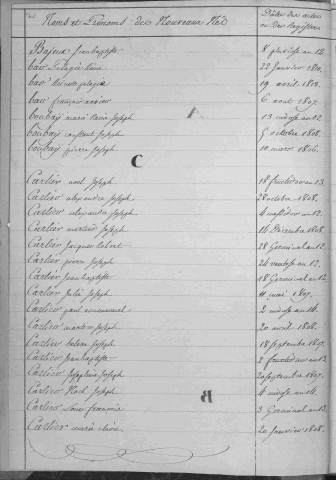 Noms et Prénoms des Nouveaux Nés
Dates des actes
ou des Registres
Bajeux jean baptiste 8 pluviose an 12
bar Pelagie 22 Janvier 1808.
bar pelagie 19 avril 1808.
bar françois 6 aout 1807.
boubay marie Joseph 13 nivose an 12
boubay constant Joseph 9 octobre 1808.
boubay pierre Joseph 10 mars 1806.
C
Carlier noel Joseph 18 fructidor an 13
Carlier alexandre Joseph 28 octobre 1808.
Carlier alexandre Joseph 4 messidor an 12
Carlier martin Joseph 16 Décembre 1808.
Carlier Jacques 28 Germinal an 12
Carlier pierre Joseph 24 ventose an 12
Carlier Jean baptiste 18 Germinal an 12
Carlier Julie Joseph 11 mai 1807.
Carlier paul emmanuel 2 nivose an 14
Carlier Joseph 20 avril 1808.
Carlier Joseph 18 septembre 1807.
Carlier Jean baptiste 2 fructidor an 13
Carlier Josephine Joseph 20 septembre 1807.
Carlier Joseph 4 nivose an 14
Carlier Louis françois 3 Germinal an 13
Carlier marie 20 Janvier 1808.